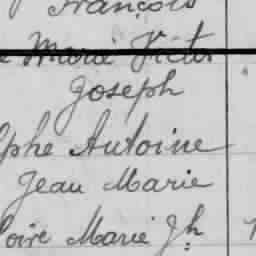 François
Marie Victor
Joseph
lphe Antoine
Jean Marie
loire Marie Jh